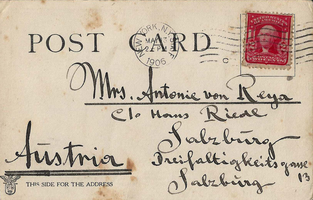 POST CARD
NEW YORK, N.Y.
MAR
1906
2
2
Mrs. Antonie von Reya
C/o Hans Riedl
Salzburg
Austria
Dreifaltigkeitsgasse
13
Salzburg
THIS SIDE FOR THE ADDRESS